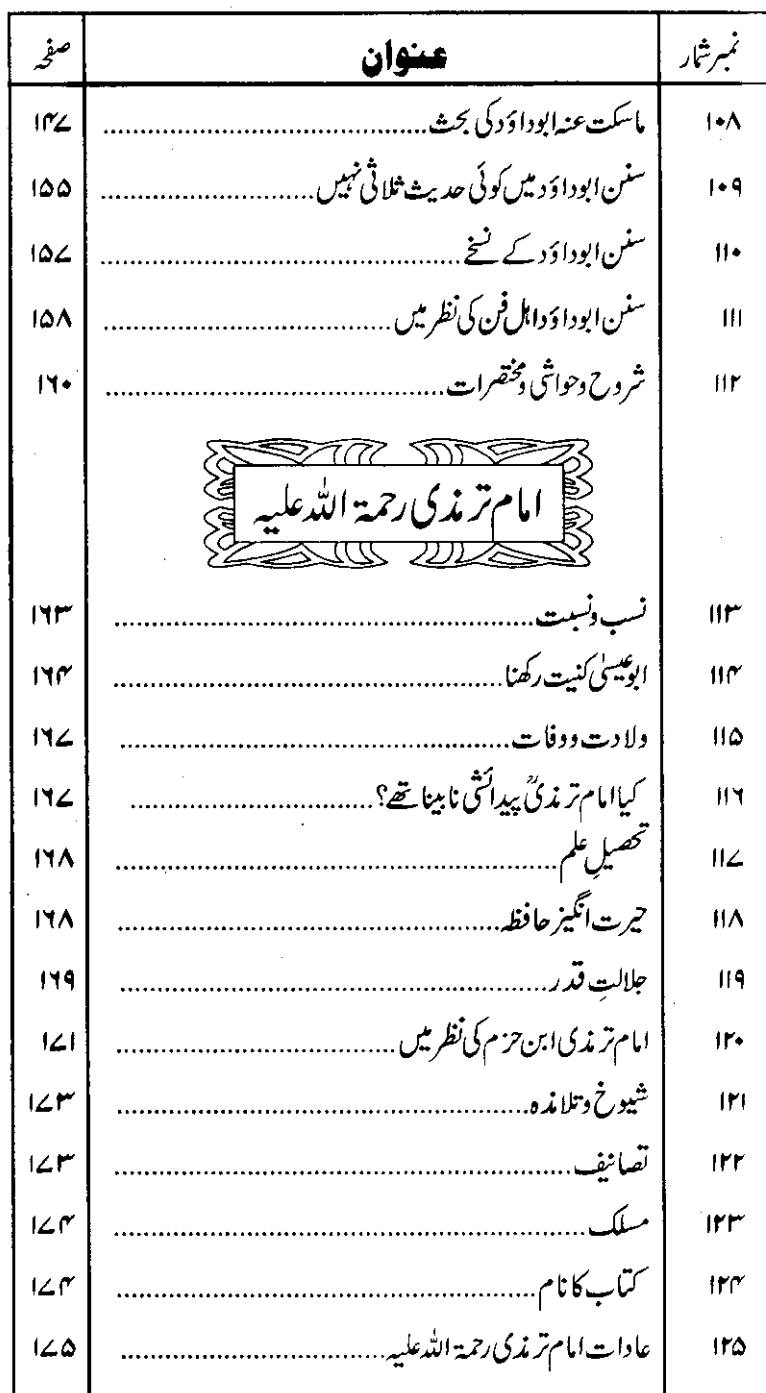 نمبرشمار عنوان صفحہ
۱۰۸ ماسکت عنہ ابوداؤد کی بحث ۱۴۷
۱۰۹ سنن ابوداؤد میں کوئی حدیث ثلاثی نہیں ۱۵۵
۱۱۰ سنن ابوداؤد کے نسخے ۱۵۷
۱۱۱ سنن ابوداؤد اہل فن کی نظر میں ۱۵۸
۱۱۲ شروح وحواشی ومختصرات ۱۶۰
امام ترمذی رحمۃ اللہ علیہ
۱۱۳ نسب ونسبت ۱۶۳
۱۱۴ ابوعیسیٰ کنیت رکھنا ۱۶۴
۱۱۵ ولادت ووفات ۱۶۷
۱۱۶ کیا امام ترمذیؒ پیدائشی نابینا تھے؟ ۱۶۷
۱۱۷ تحصیلِ علم ۱۶۸
۱۱۸ حیرت انگیز حافظہ ۱۶۸
۱۱۹ جلالتِ قدر ۱۶۹
۱۲۰ امام ترمذی ابن حزم کی نظر میں ۱۷۱
۱۲۱ شیوخ وتلامذہ ۱۷۳
۱۲۲ تصانیف ۱۷۳
۱۲۳ مسلک ۱۷۴
۱۲۴ کتاب کا نام ۱۷۴
۱۲۵ عادات امام ترمذی رحمۃ اللہ علیہ ۱۷۵